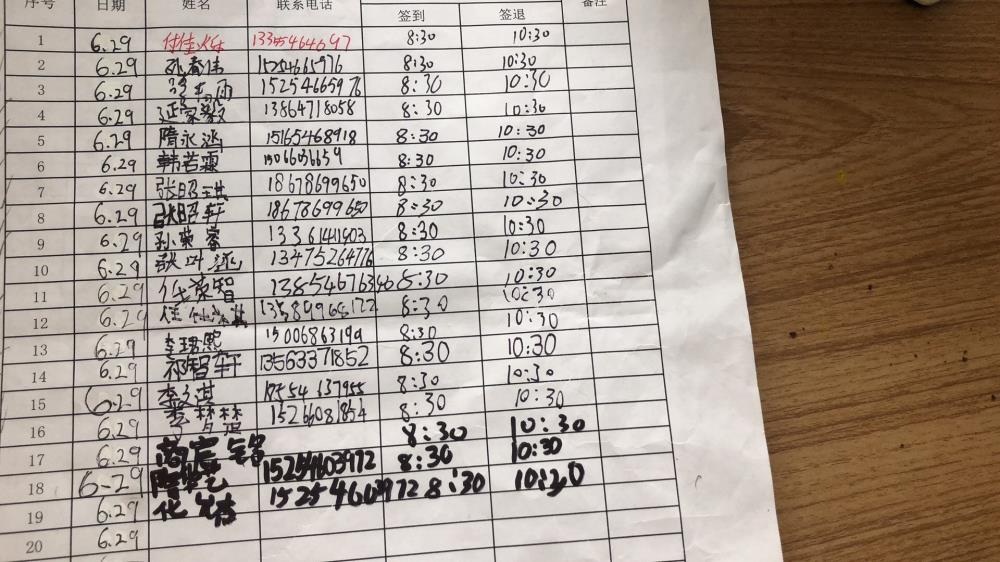 序号 日期 姓名 联系电话 签到 签退 备注
1 6.29 8:30 10:30
2 6.29 孙春伟 15254665976 8:30 10:30
3 6.29 15254665976 8:30 10:30
4 6.29 延家毅 13864718058 8:30 10:30
5 6.29 隋永鸿 15165468918 8:30 10:30
6 6.29 韩若霖 8:30 10:30
7 6.29 张昭 18678699650 8:30 10:30
8 6.29 张昭轩 18678699650 8:30 10:30
9 6.29 孙荣睿 13361441903 8:30 10:30
10 6.29 张叶 13475264776 8:30 10:30
11 6.29 代荣智 13854676346 8:30 10:30
12 6.29 8:30 10:30
13 6.29 李珺熙 15006863199 8:30 10:30
14 6.29 祁智轩 13563371852 8:30 10:30
15 6.29 李文淇 18554637955 8:30 10:30
16 6.29 李梦楚 15266081854 8:30 10:30
17 6.29 8:30 10:30
18 6.29 15254603972 8:30 10:30
19 6.29 15254603972 8:30 10:30
20 6.29